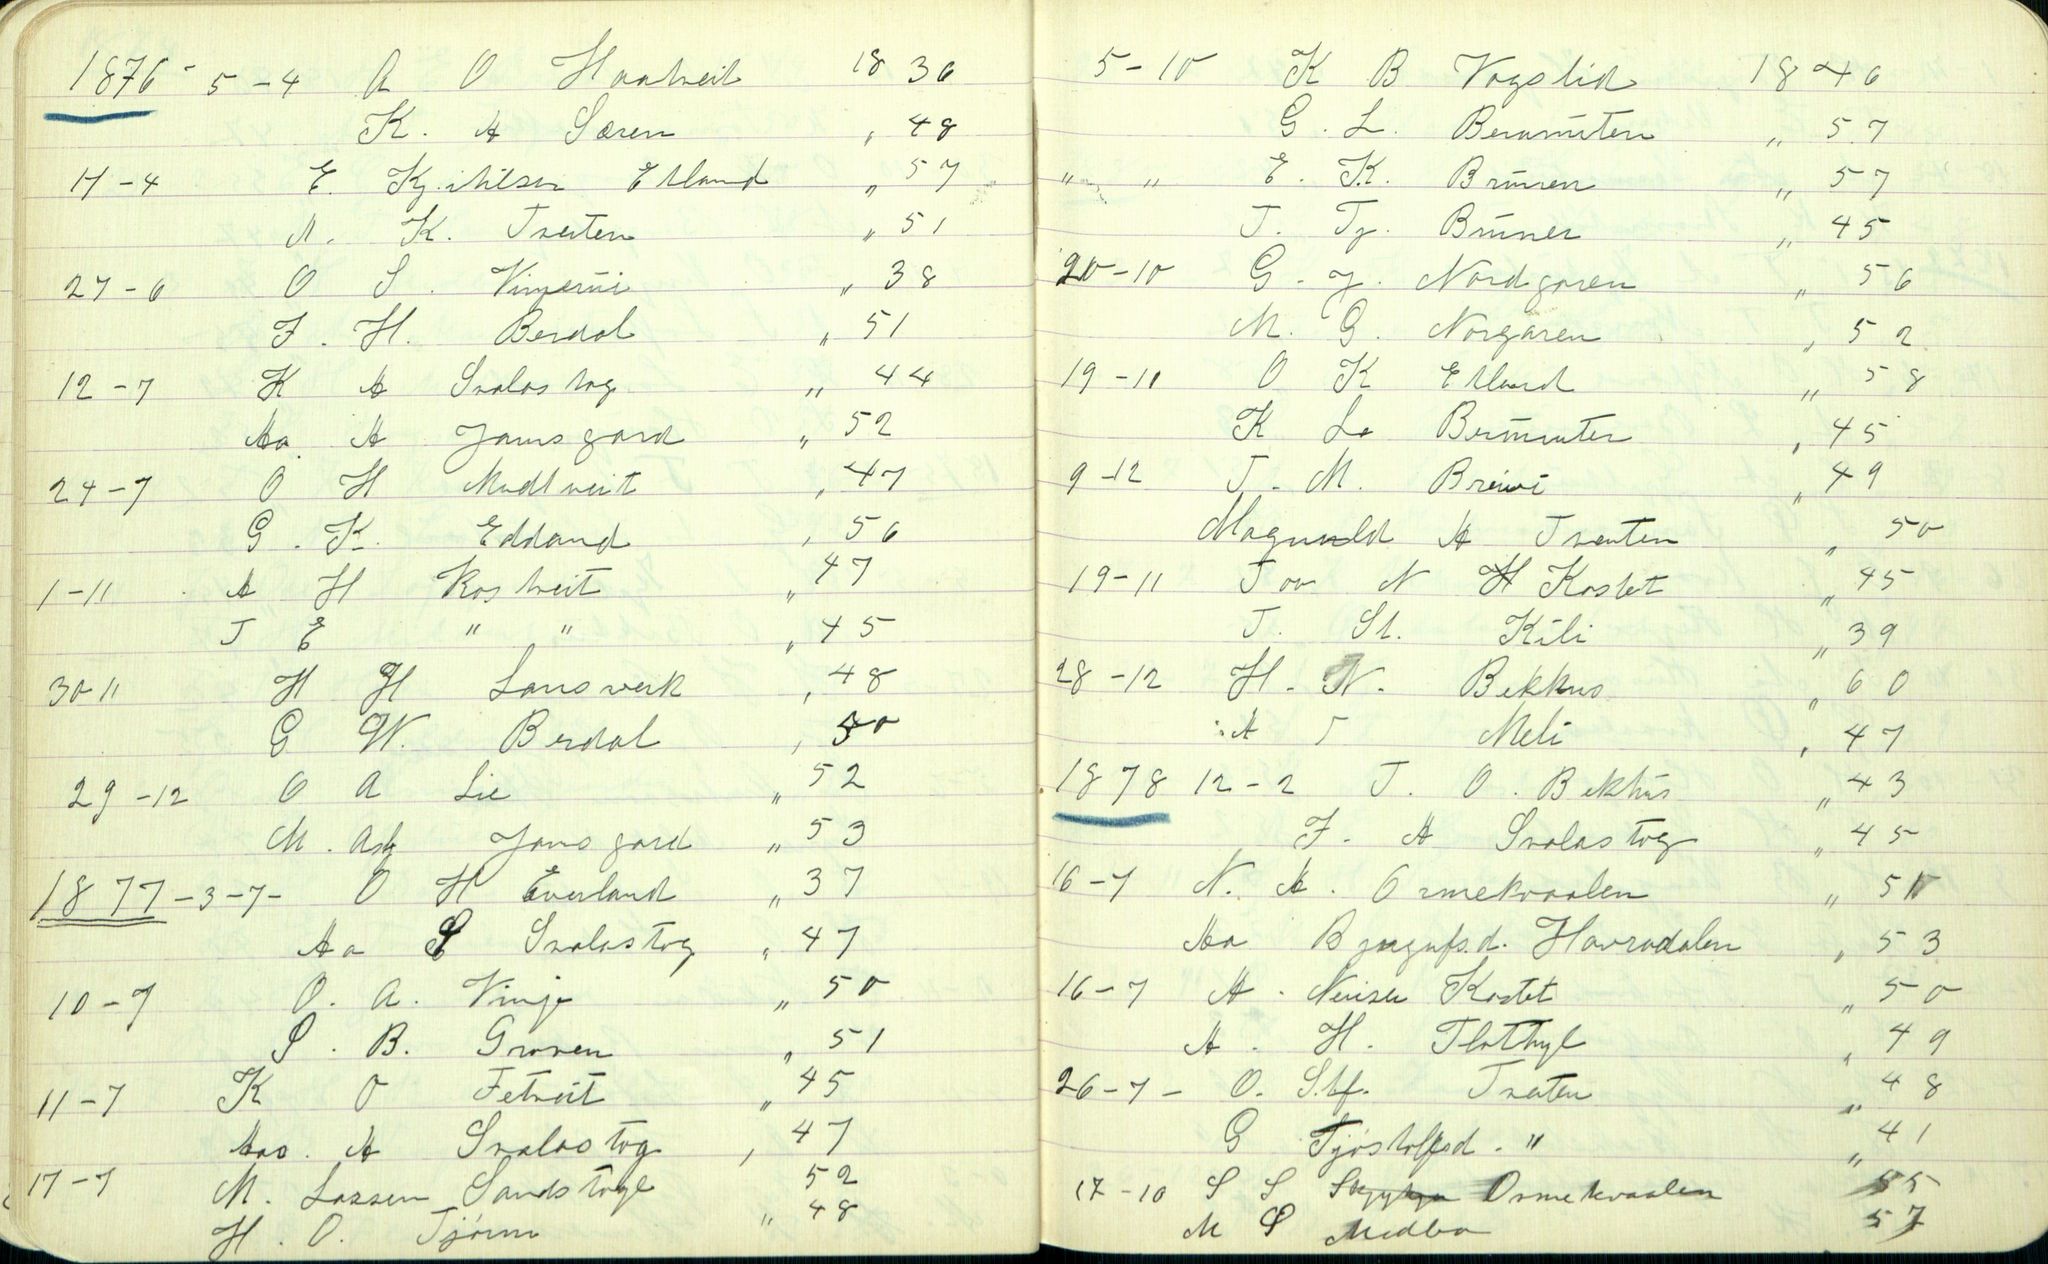 1876 - 5 - 4 A O Haatveit 18 36
K. A Særen „ 48
17 - 4 E. Kj.itilsen Etland „ 57
A. K. Tveiten „ 51
27 - 6 O S. Vinjerúi „ 38
F. H. Berdal „ 51
12 - 7 K A Svalastog „ 44
Aa. A Jamsgard „ 52
24 - 7 O H Midtveit „ 47
G. K. Edland „ 56
1 - 11 A H Kostveit „ 47
J E " " „ 45
30 11 H H Lansverk „ 48
G W. Berdal „
29 - 12 O A Lie „ 52
M. Jamsgard „ 53
1877 - 3 - 7 - O H Everland „ 37
Aa S Svalastog „ 47
10 - 7 O. A. Vinje „ 50
S. B. Groven „ 51
11 - 7 K O Fetveit „ 45
Aas. A Svalastog „ 47
17 - 7 M. Lassen Sandstoyl 52
H. O. Tjørnn „ 48
5 - 10 K B Vogslid 18 46
G. L. Berúnúten „ 57
" " E. K. Brúnen „ 57
T. Tj. Brúnes „ 45
20 - 10 G. J. Nordgaren „ 56
M. G. Norgaren „ 52
19 - 11 O K Etland „ 58
K L. Berúnuten „ 45
9 - 12 T. M. Breivi „ 49
Magnuld A Tveiten „ 50
19 - 11 Tov N H Kostet „ 45
T. St. Kili „ 39
28 - 12 H. N. Bekkus „ 60
A T Meli „ 47
1878 12 - 2 T. O. Bekhús „ 43
F. A Svalastog „ 45
16 - 7 N. A. Ormekvaalen „ 51
Aa Byngufsd. Havradalen „ 53
16 - 7 A. Neiisen Kostet „ 50
A. H. Flothyl „ 49
26 - 7 - O. Stf. Tveiten „ 48
G Tjøstolfsd. " „ 41
17 - 10 S S Ormekvaalen 55
M S Midbø 57